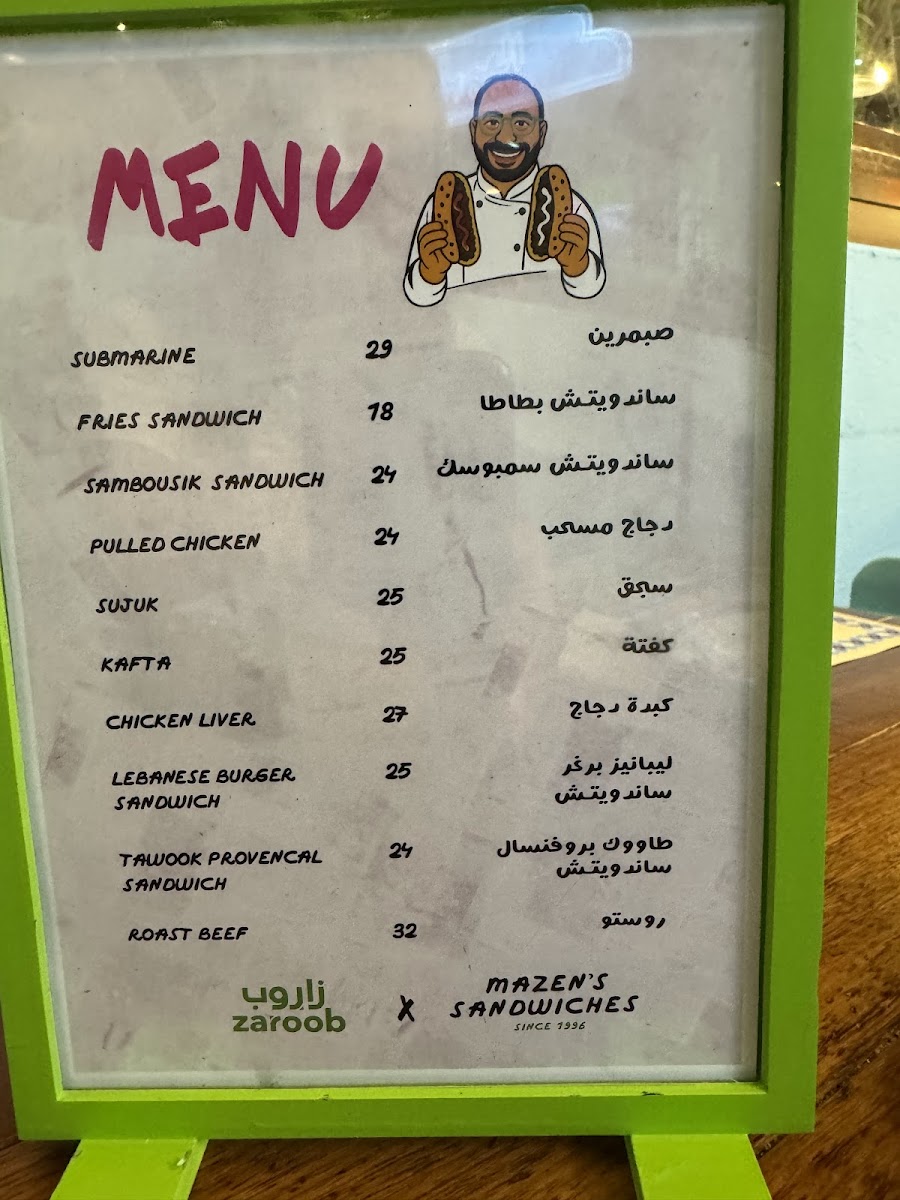 MENU
SUBMARINE 29 صبمرين
FRIES SANDWICH 18 ساندويتش بطاطا
SAMBOUSIK SANDWICH 24 ساندويتش سمبوسك
PULLED CHICKEN 24 دجاج مسحب
SUJUK 25 سجق
KAFTA 25 كفتة
CHICKEN LIVER 27 كبدة دجاج
LEBANESE BURGER 25 ليبانيز برغر
SANDWICH ساندويتش
TAWOOK PROVENCAL 24 طاووك بروفنسال
SANDWICH ساندويتش
ROAST BEEF 32 روستو
زاروب
zaroob
X
MAZEN'S
SANDWICHES
SINCE 1996